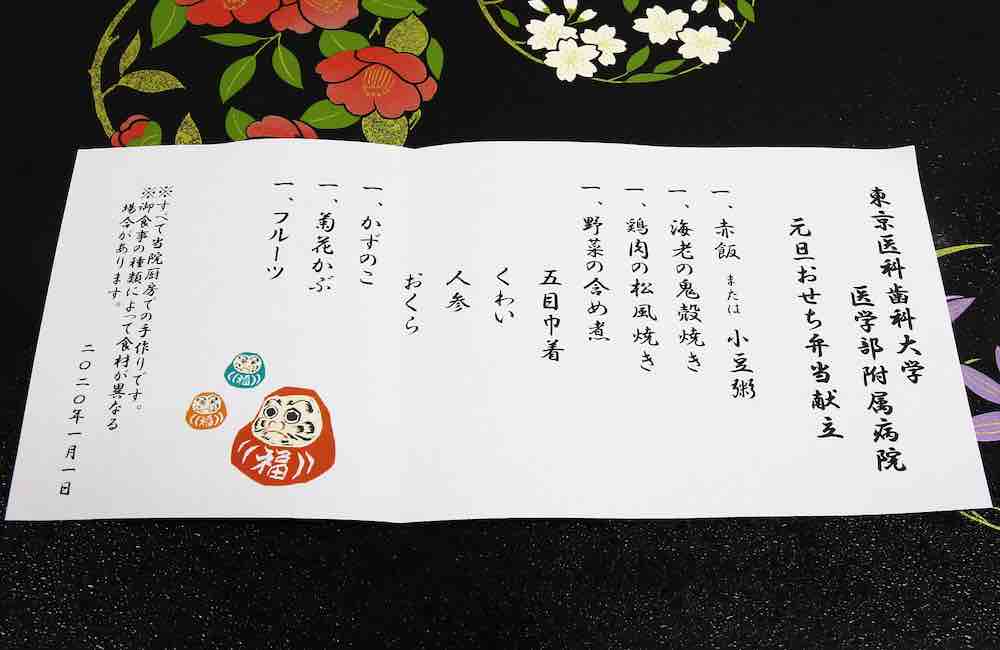 東京医科歯科大学
医学部附属病院
元旦おせち弁当献立
一、赤飯 または 小豆粥
一、海老の鬼殻焼き
一、鶏肉の松風焼き
一、野菜の含め煮
五目巾着
くわい
人参
おくら
一、かずのこ
一、菊花かぶ
一、フルーツ
※すべて当院厨房での手作りです。
※御食事の種類によって食材が異なる
場合があります。
二〇二〇年一月一日
福
福
福